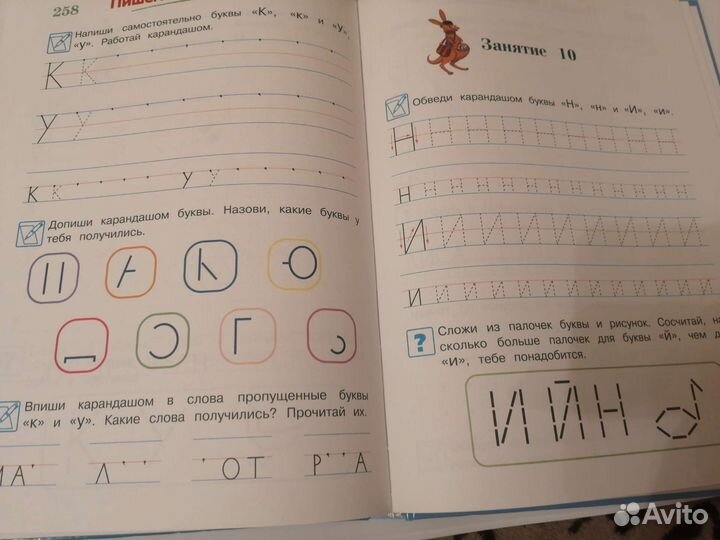 258
Напиши самостоятельно буквы «К», «к» и «У»,
«у». Работай карандашом.
К К
У У
к к у у
Допиши карандашом буквы. Назови, какие буквы у
тебя получились.
Впиши карандашом в слова пропущенные буквы
«к» и «у». Какие слова получились? Прочитай их.
МА Л ОТ Р А
Занятие 10
Обведи карандашом буквы «Н», «н» и «И», «и».
Н Н Н Н Н Н Н Н Н Н Н
н н н н н н н н н н н н н н
И И И И И И И И И И И
и и и и и и и и и и и и
?
Сложи из палочек буквы и рисунок. Сосчитай, на
сколько больше палочек для буквы «Й», чем
«И», тебе понадобится.
И Й Н
Avito